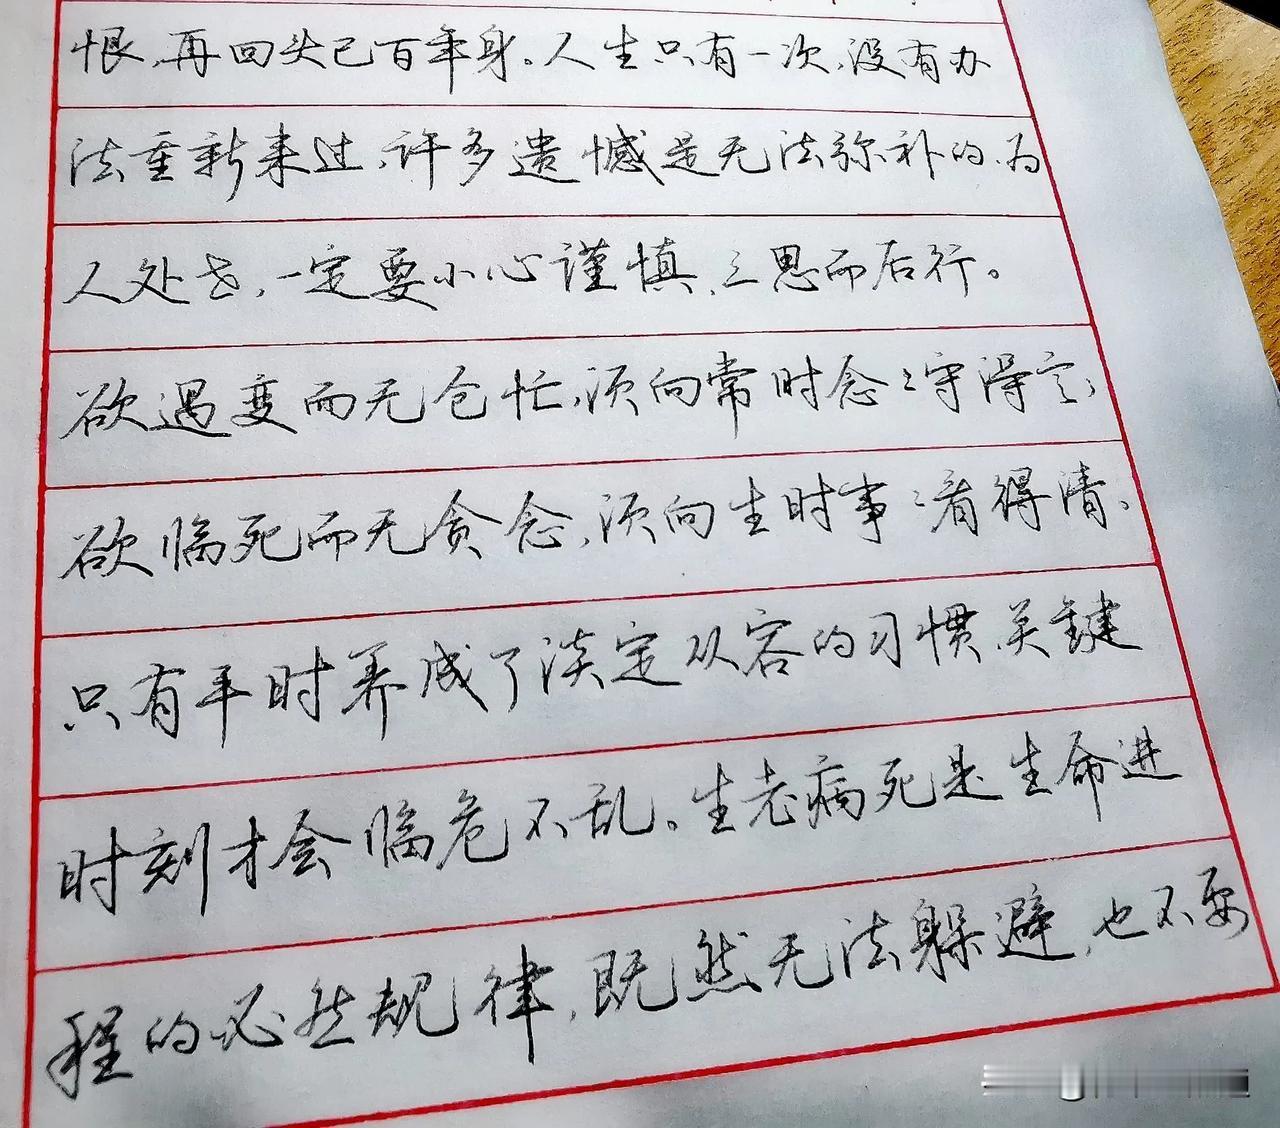 恨,再回头已百年身。人生只有一次,没有办
法重新来过,许多遗憾是无法弥补的,为
人处世,一定要小心谨慎,三思而后行。
欲遇变而无仓忙,须向常时念々守得定;
欲临死而无贪念,须向生时事々看得清。
只有平时养成了淡定从容的习惯,关键
时刻才会临危不乱。生老病死是生命进
程的必然规律,既然无法躲避,也不要